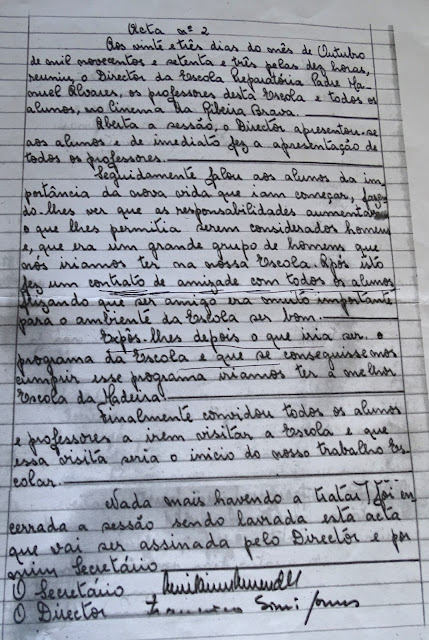 Acta nº 2
Aos vinte e três dias do mês de Outubro
de mil novecentos e setenta e três pelas dez horas,
reuniu o Director da Escola Preparatória Padre Ma-
nuel Álvares, os professores desta Escola e todos os
alunos, no Cinema da Ribeira Brava.
Aberta a sessão, o Director apresentou-se
aos alunos e de imediato fez a apresentação de
todos os professores.
Seguidamente falou aos alunos da im-
portância da nova vida que iam começar, fazen
do-lhes ver que as responsabilidades aumentar
o que lhes permitia serem considerados homens
e, que era um grande grupo de homens que
nós iriamos ter na nossa Escola. Após isto
fez um contrato de amizade com todos os alunos
frizando que ser amigo era muito importante
para o ambiente da Escola ser bom.
Expôs-lhes depois o que iria ser o
programa da Escola e que se conseguissemos
cumprir esse programa iriamos ter a melhor
Escola da Madeira.
Finalmente convidou todos os alunos
e professores a irem visitar a Escola e que
essa visita seria o início do nosso trabalho Es-
colar.
Nada mais havendo a tratar, foi en
cerrada a sessão sendo lavrada esta acta
que vai ser assinada pelo Director e por
mim Secretário
O Secretário
O Director